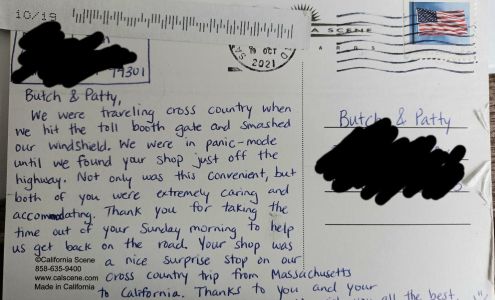 10/19
79301
OCT
2021
A SCENE
ARDS
Butch & Patty,
We were traveling cross country when
we hit the toll booth gate and smashed
our windshield. We were in panic-mode
until we found your shop just off the
highway. Not only was this convenient, but
both of you were extremely caring and
accomodating. Thank you for taking the
time out of your Sunday morning to help
us get back on the road. Your shop was
a nice surprise stop on our
cross country trip from Massachusetts
to California. Thanks to you and your
you all the best.
©California Scene
858-635-9400
www.calscene.com
Made in California
Butch & Patty